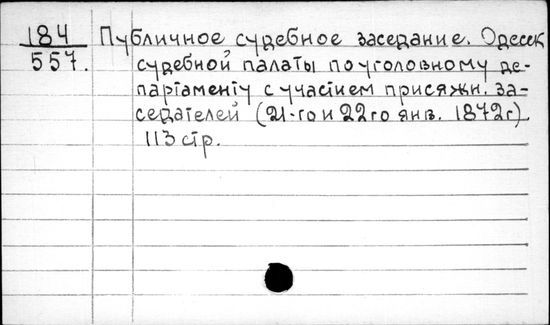 184 Публичное судебное заседание. Одесск
557. судебной палаты по уголовному де-
партаменту с участием присяжн. за-
седателей (21-го и 22го янв. 1872г).
113 стр.